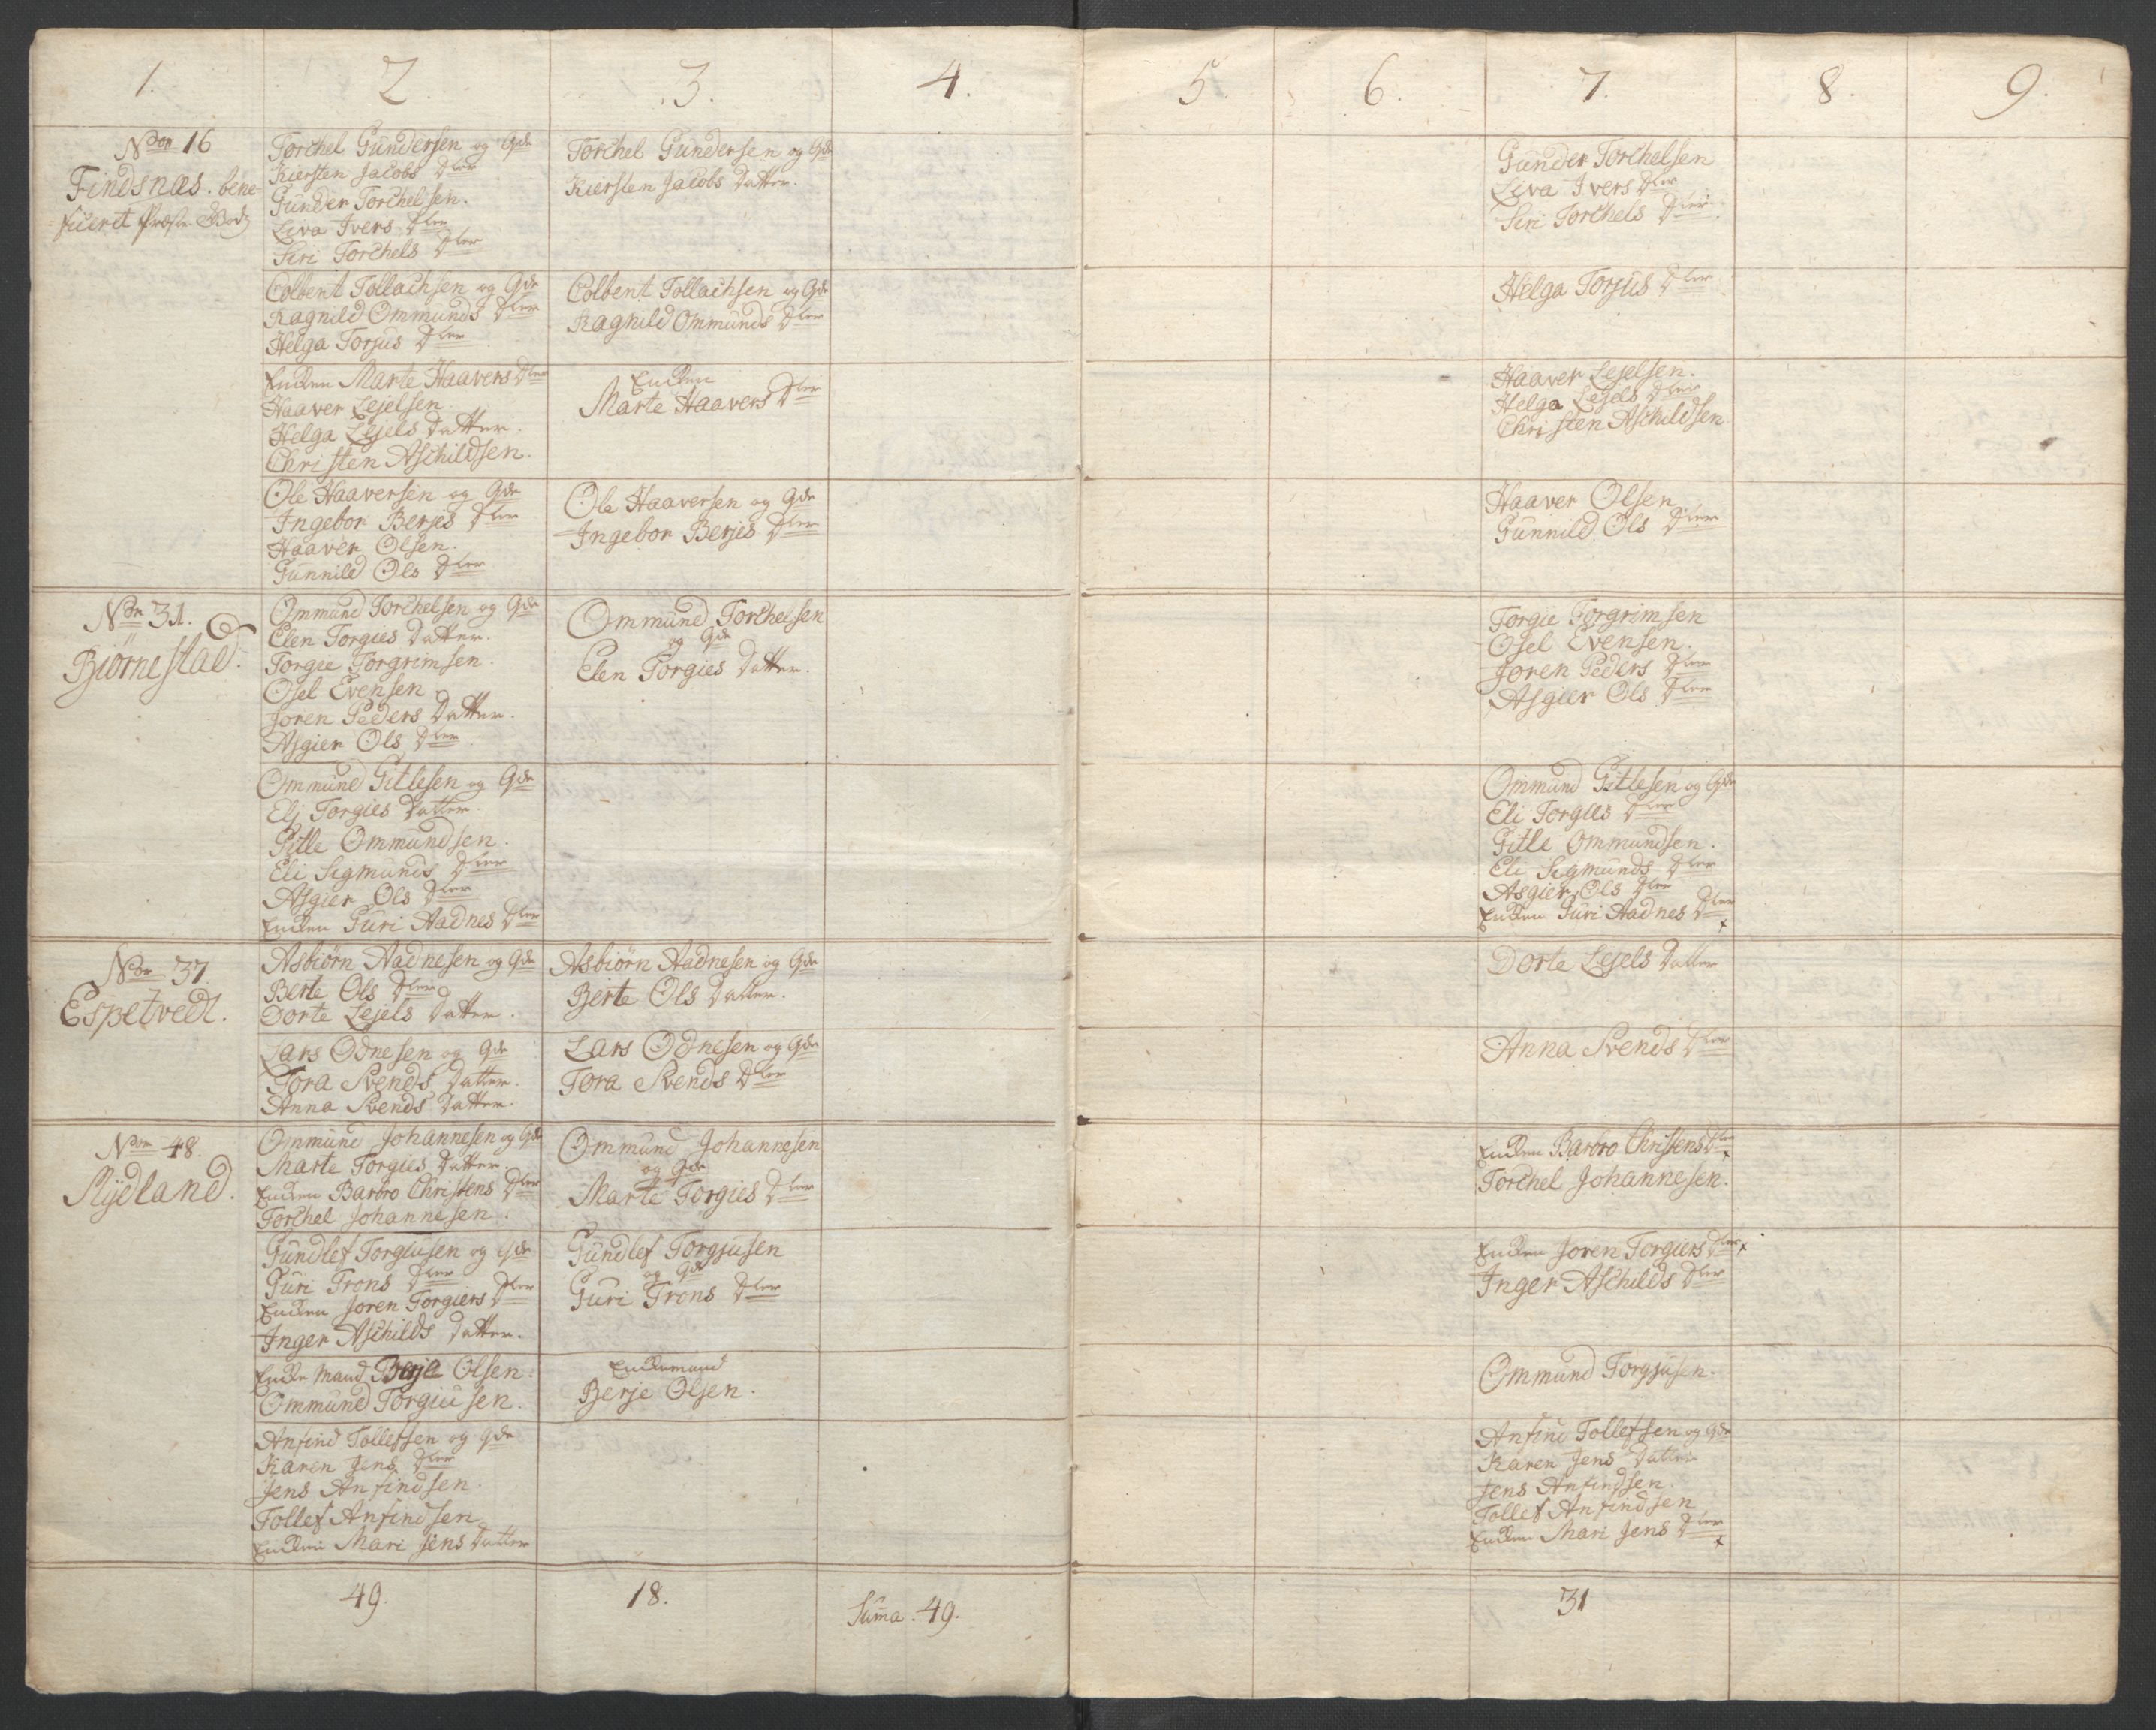 1.
2
3.
4.
5.
6.
7.
8.
9.
Nor 16
Findsnæs. bene-
ficirit Præste Bod
Torchel Gundersen og Gde
Kiersten Jacobs Dter
Gunder Torchelsen.
Liva Ivers Dter
Siri Torchels Dter
Torchel Gundersen og Gde
Kiersten Jacobs Datter.
Gunder Torchelsen
Liva Ivers Dter
Siri Torchels Dter
Colbent Tollachsen og Gde
Ragnild Ommunds Dter
Helga Torjus Dter
Colbent Tollachsen og Gde
Ragnild Ommunds Dter
Helga Torjus Dter
Encken Marte Haavers Dter
Haaver Lejelsen.
Helga Lejels Datter.
Christen Aschildsen.
Encken
Marte Haavers Dter
Haaver Lejelsen.
Helga Lejels Dter
Christen Aschildsen
Ole Haaversen og Gde
Ingebor Berjes Dter
Haaver Olsen.
Gunnild Ols Dter
Ole Haaversen og Gde
Ingebor Berjes Dter
Haaver Olsen
Gunnild Ols Dter
Nor 31.
Biörnestad.
Ommund Torchelsen og Gde
Elen Torgies Datter.
Torgie Torgrimsen.
Osel Evensen
Joren Peders Datter.
Asgier Ols Dter
Ommund Torchelsen
og Gde
Elen Torgies Datter.
Torgie Torgrimsen
Osel Evensen.
Joren Peders Dter
Asgier Ols Dter
Ommund Gitlesen og Gde
Elj Torgies Datter.
Gitle Ommundsen.
Eli Sigmunds Dter
Asgier Ols Dter
Encken Guri Aadnes Dter
Ommund Gitlesen og Gde
Eli Torgies Dter
Gitle Ommundsen.
Eli Sigmunds Dter
Asgier Ols Dter
Encken Guri Aadnes Dter
Nor 37.
Espetvedt.
Asbiörn Aadnesen og Gde
Berte Ols Dter
Dorte Lejels Datter.
Asbiörn Aadnesen og Gde
Berte Ols Datter.
Dorte Lejels Datter
Lars Odnesen og Gde
Tora Svends Datter.
Anna Svends Datter.
Lars Odnesen og Gde
Tora Svends Dter
Anna Svends Dter
Nor 48.
Nydland.
Ommund Johannesen og Gde
Marte Torgies Datter.
Encken Barbro Christens Dter
Torchel Johannesen.
Ommund Johannesen
og Gde
Marte Torgies Dter
Encken Barbro Christens Dter
Torchel Johannesen.
Gundlef Torgiusen og Gde
Guri Trons Dter
Encken Joren Torgiers Dter
Inger Aschilds Datter.
Gundlef Torgjusen
og Gde
Guri Trons Dter
Encken Joren Torgiers Dter
Inger Aschilds Dter
Encke Mand Berje Olsen.
Ommund Torgiusen.
Enckemand
Berje Olsen.
Ommund Torgjusen.
Anfind Tollefsen og Gde
Karen Jens Dter
Jens Anfindsen.
Tollef Anfindsen
Encken Mari Jens Datter
Anfind Tollefsen og Gde
Karen Jens Datter
Jens Anfindsen.
Tollef Anfindsen
Encken Mari Jens Dter
49.
18.
Suma. 49.
31